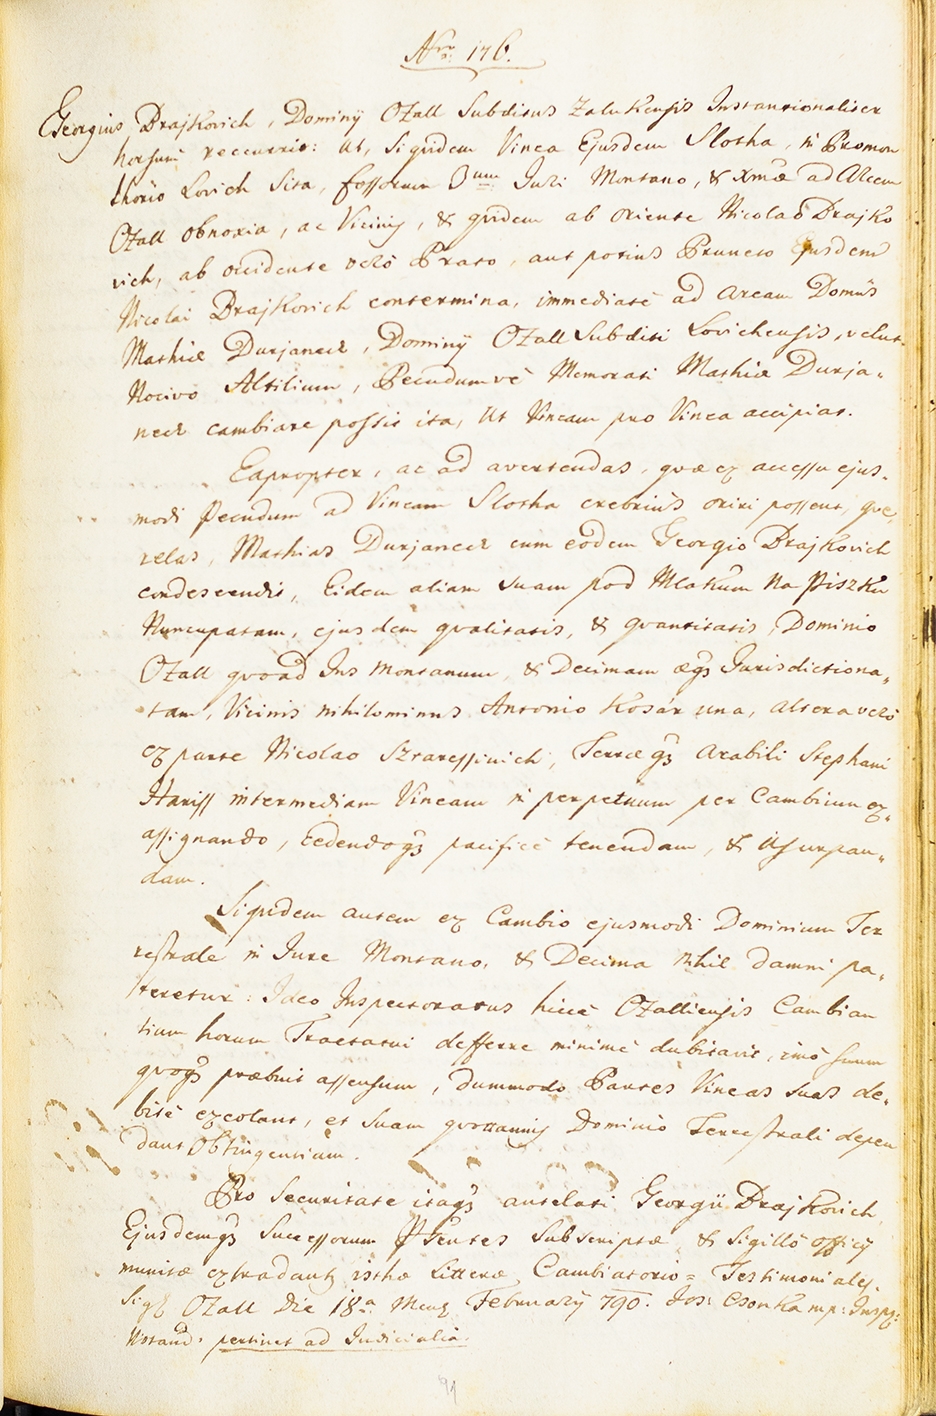 Nro: 176.
Georgius Brajkovich, Dominÿ Ozall Subditus Zalukensis Instantionaliter
horsum reccurrit: Ut, Siquidem Vinea Ejusdem Slotha, in Promon
thorio Lovich Sita, fossorum 3um Juri Montano, & Xmæ ad Arcem
Ozall obnoxia, ac Vicinis, & quidem ab oriente Nicolaô Brajko
vich, ab occidente verò Prato, aut potius Pruneto Ejusdem
Nicolai Brajkovich contermina, immediatè ad Aream Domûs
Mathiæ Durjanecz, Dominÿ Ozall Subditi Lovichensis, velut
Nocivo Altilium, Pecudumvè Memorati Mathiæ Durja„
necz cambiare possit ita, Ut Vineam pro Vinea accipiat.
Eapropter, ac ad avertendas, quæ ex accessu ejus„
modi Pecudum ad Vineam Slotha crebriùs oriri possent, que„
relas, Mathias Durjanecz cum eodem Georgio Brajkovich
condescendit, Eidem aliam suam pod Mlakum Na Piszku
Nuncupatam, ejusdem qvalitatis, & qvantitatis, Dominio
Ozall qvoad Jus Montanum, & Decimam æq3 Jurisdictiona„
tam, Vicinis nihilominus Antonio Kosár una, altera verò
ex parte Nicolao Sztaressinich, Terræq3 Arabili Stephani
Hariss intermediam Vineam in perpetuum per Cambium ex„
assignando, Cedendoq3 pacificè tenendam, & Usurpan„
dam.
Siquidem autem ex Cambio ejusmodi Dominium Ter
restrale in Jure Montano, & Decima Nihil damni pa„
teretur: Ideo Inspectoratus hicce Ozalliensis Cambian
tium horum Tractatui defferre minimè dubitavit, imò suum
qvoq3 præbuit assensum, dummodo Partes Vineas suas de„
bitè excolant, et Suam qvotannis Dominio Terrestrali depen
dant Obtingentiam.
Pro Securitate itaq3 antelati Georgii Brajkovich
Ejusdemq3 Successorum Pntes Subscriptæ & Sigillô officÿ
munitæ extradantur isthæ Litteræ Cambiatorio= Testimoniales.
Sigl Ozall Die 18a Mens Februarÿ 790. Jos: Csonka mp: Inspr:
Notand: pertinet ad Judicialia.
91